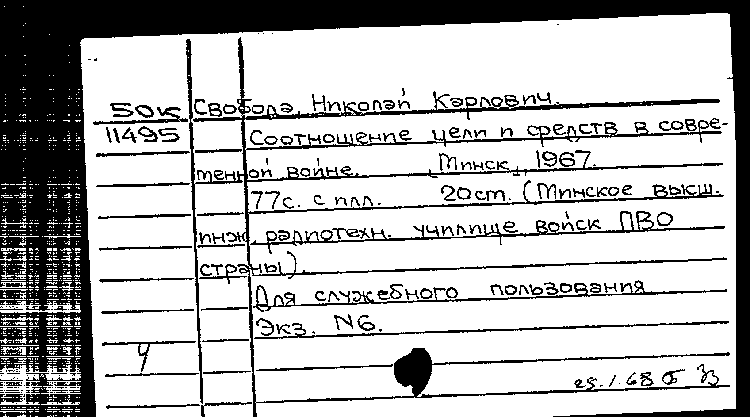 50к Свобода, Николай Карлович.
11495 Соотношение цели и средств в совре-
менной войне. Минск, 1967.
77с. с илл. 20см. (Минское высш.
инж. радиотехн. училище войск ПВО
страны).
Для служебного пользования
Экз. N6.
Ч
25.1.68